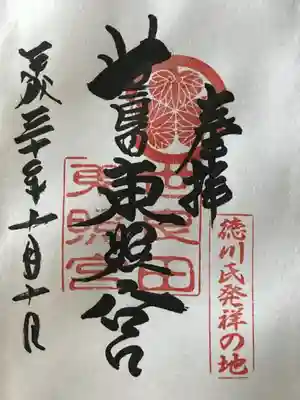 奉拝
徳川氏発祥の地
世良田東照宮
世良田
東照宮
平成三十年十一月十一日